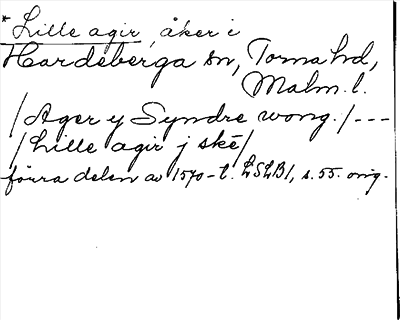 * Lille agir, åker i
Hardeberga sn, Torna hd,
Malm. l.
/Ager y Syndre wong./ ---
/Lille agir j ske/
förra delen av 1570-t. LSLB1, s. 55. orig.